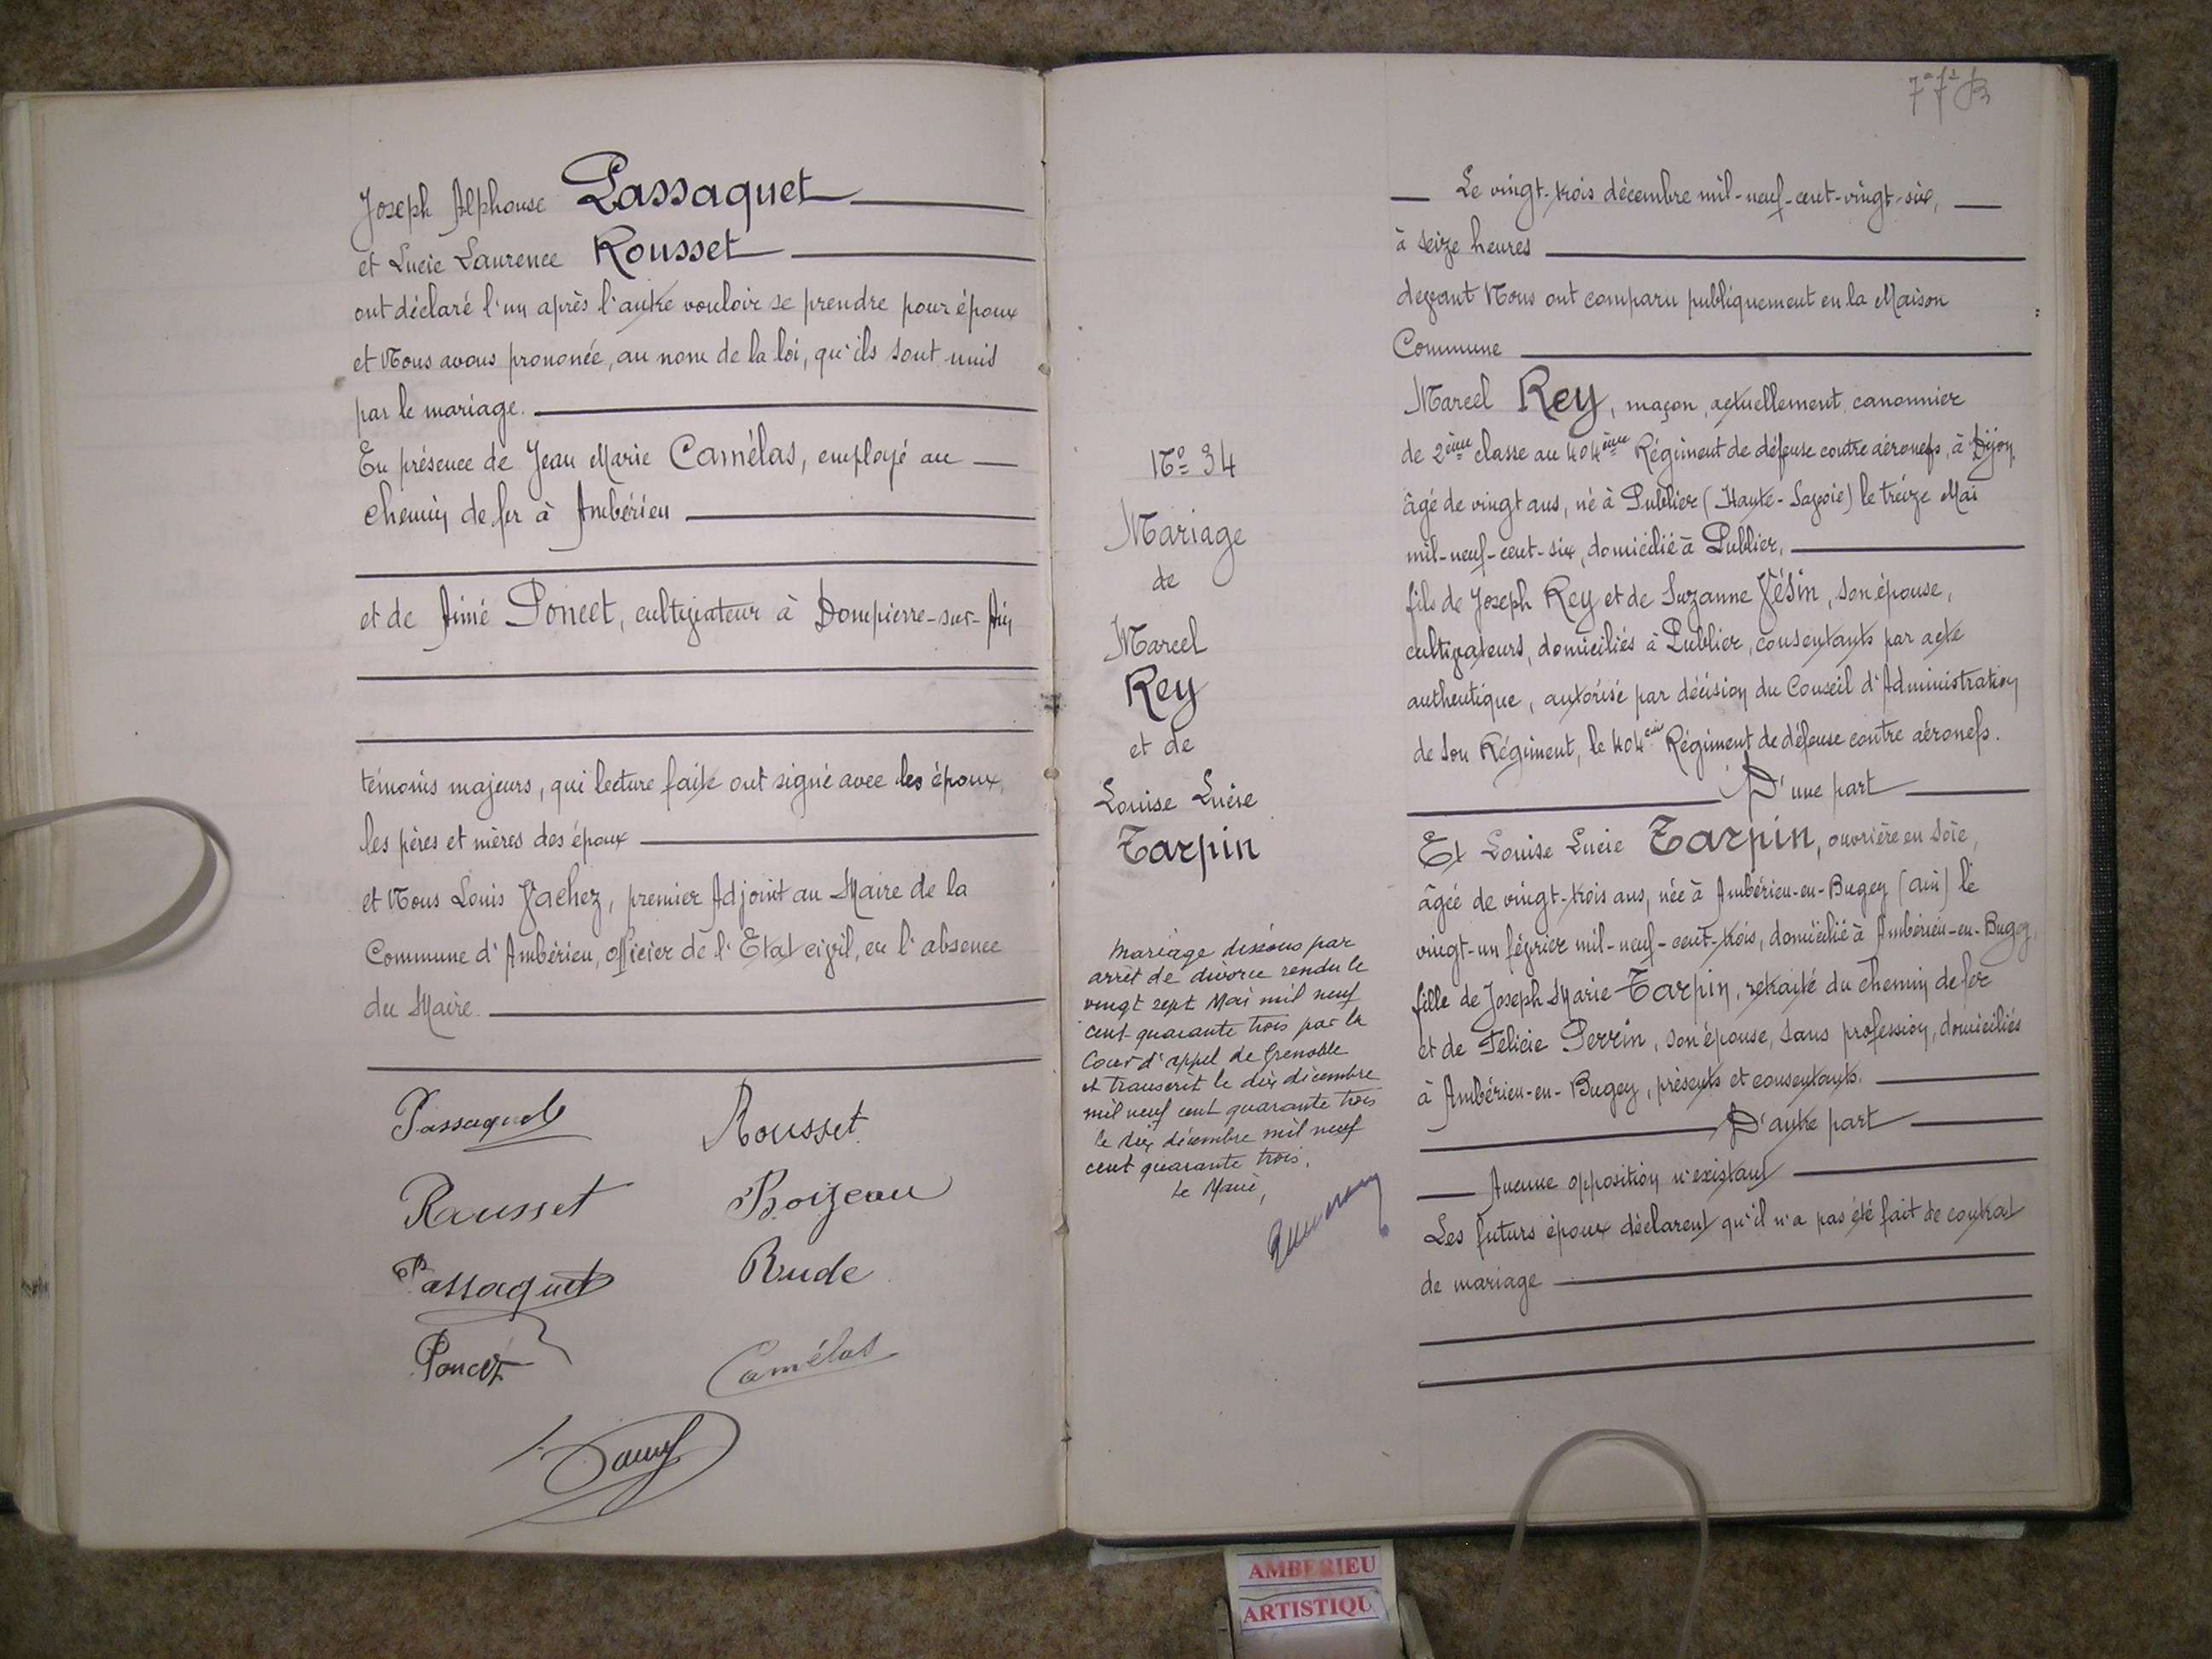 Joseph Alphonse Passaquet
et Lucie Laurence Rousset
ont déclaré l'un après l'autre vouloir se prendre pour époux
et Nous avons prononcé, au nom de la loi, qu'ils sont unis
par le mariage.
En présence de Jean Marie Camélas, employé au
chemin de fer à Ambérieu
et de Aimé Poncet, cultivateur à Dompierre-sur-Ain
témoins majeurs, qui lecture faite ont signé avec les époux,
les pères et mères des époux
et Nous Louis Vachez, premier Adjoint au Maire de la
Commune d'Ambérieu, officier de l'Etat civil, en l'absence
du Maire.
Passaquet Rousset
Rousset Boizeau
Passaquet Rude
Poncet Camélas
N° 34
Mariage
de
Marcel
Rey
et de
Louise Lucie
Tarpin
Mariage dissous par
arrêt de divorce rendu le
vingt sept Mai mil neuf
cent quarante trois par la
Cour d'appel de Grenoble
et transcrit le dix décembre
mil neuf cent quarante trois
le dix décembre mil neuf
cent quarante trois.
Le Maire,
Le vingt-trois décembre mil-neuf-cent-vingt-six,
à seize heures
devant Nous ont comparu publiquement en la Maison
Commune
Marcel Rey, maçon, actuellement canonnier
de 2ème classe au 404ème Régiment de défense contre aéronefs, à Dijon,
âgé de vingt ans, né à Publier (Haute-Savoie) le treize Mai
mil-neuf-cent-six, domicilié à Publier,
fils de Joseph Rey et de Suzanne Vésin, son épouse,
cultivateurs, domiciliés à Publier, consentants par acte
authentique, autorisé par décision du Conseil d'Administration
de son Régiment, le 404ème Régiment de défense contre aéronefs.
D'une part
Et Louise Lucie Tarpin, ouvrière en soie,
âgée de vingt-trois ans, née à Ambérieu-en-Bugey (Ain) le
vingt-un février mil-neuf-cent-trois, domicilié à Ambérieu-en-Bugey,
fille de Joseph Marie Tarpin, retraité du chemin de fer
et de Félicie Perrin, son épouse, sans profession, domiciliés
à Ambérieu-en-Bugey, présents et consentants.
D'autre part
Aucune opposition n'existant
Les futurs époux déclarent qu'il n'a pas été fait de contrat
de mariage
AMBERIEU
ARTISTIQU